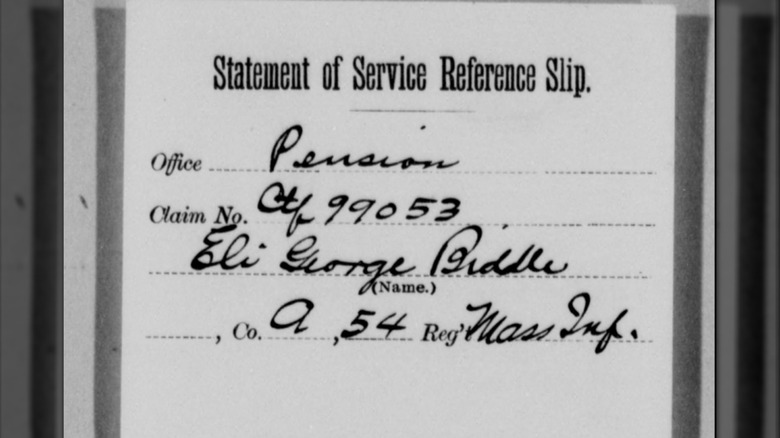 Statement of Service Reference Slip.
Office Pension
Claim No. Ctf 99053
Eli George Biddle
(Name.)
, Co. A , 54 Reg't Mass Inf.